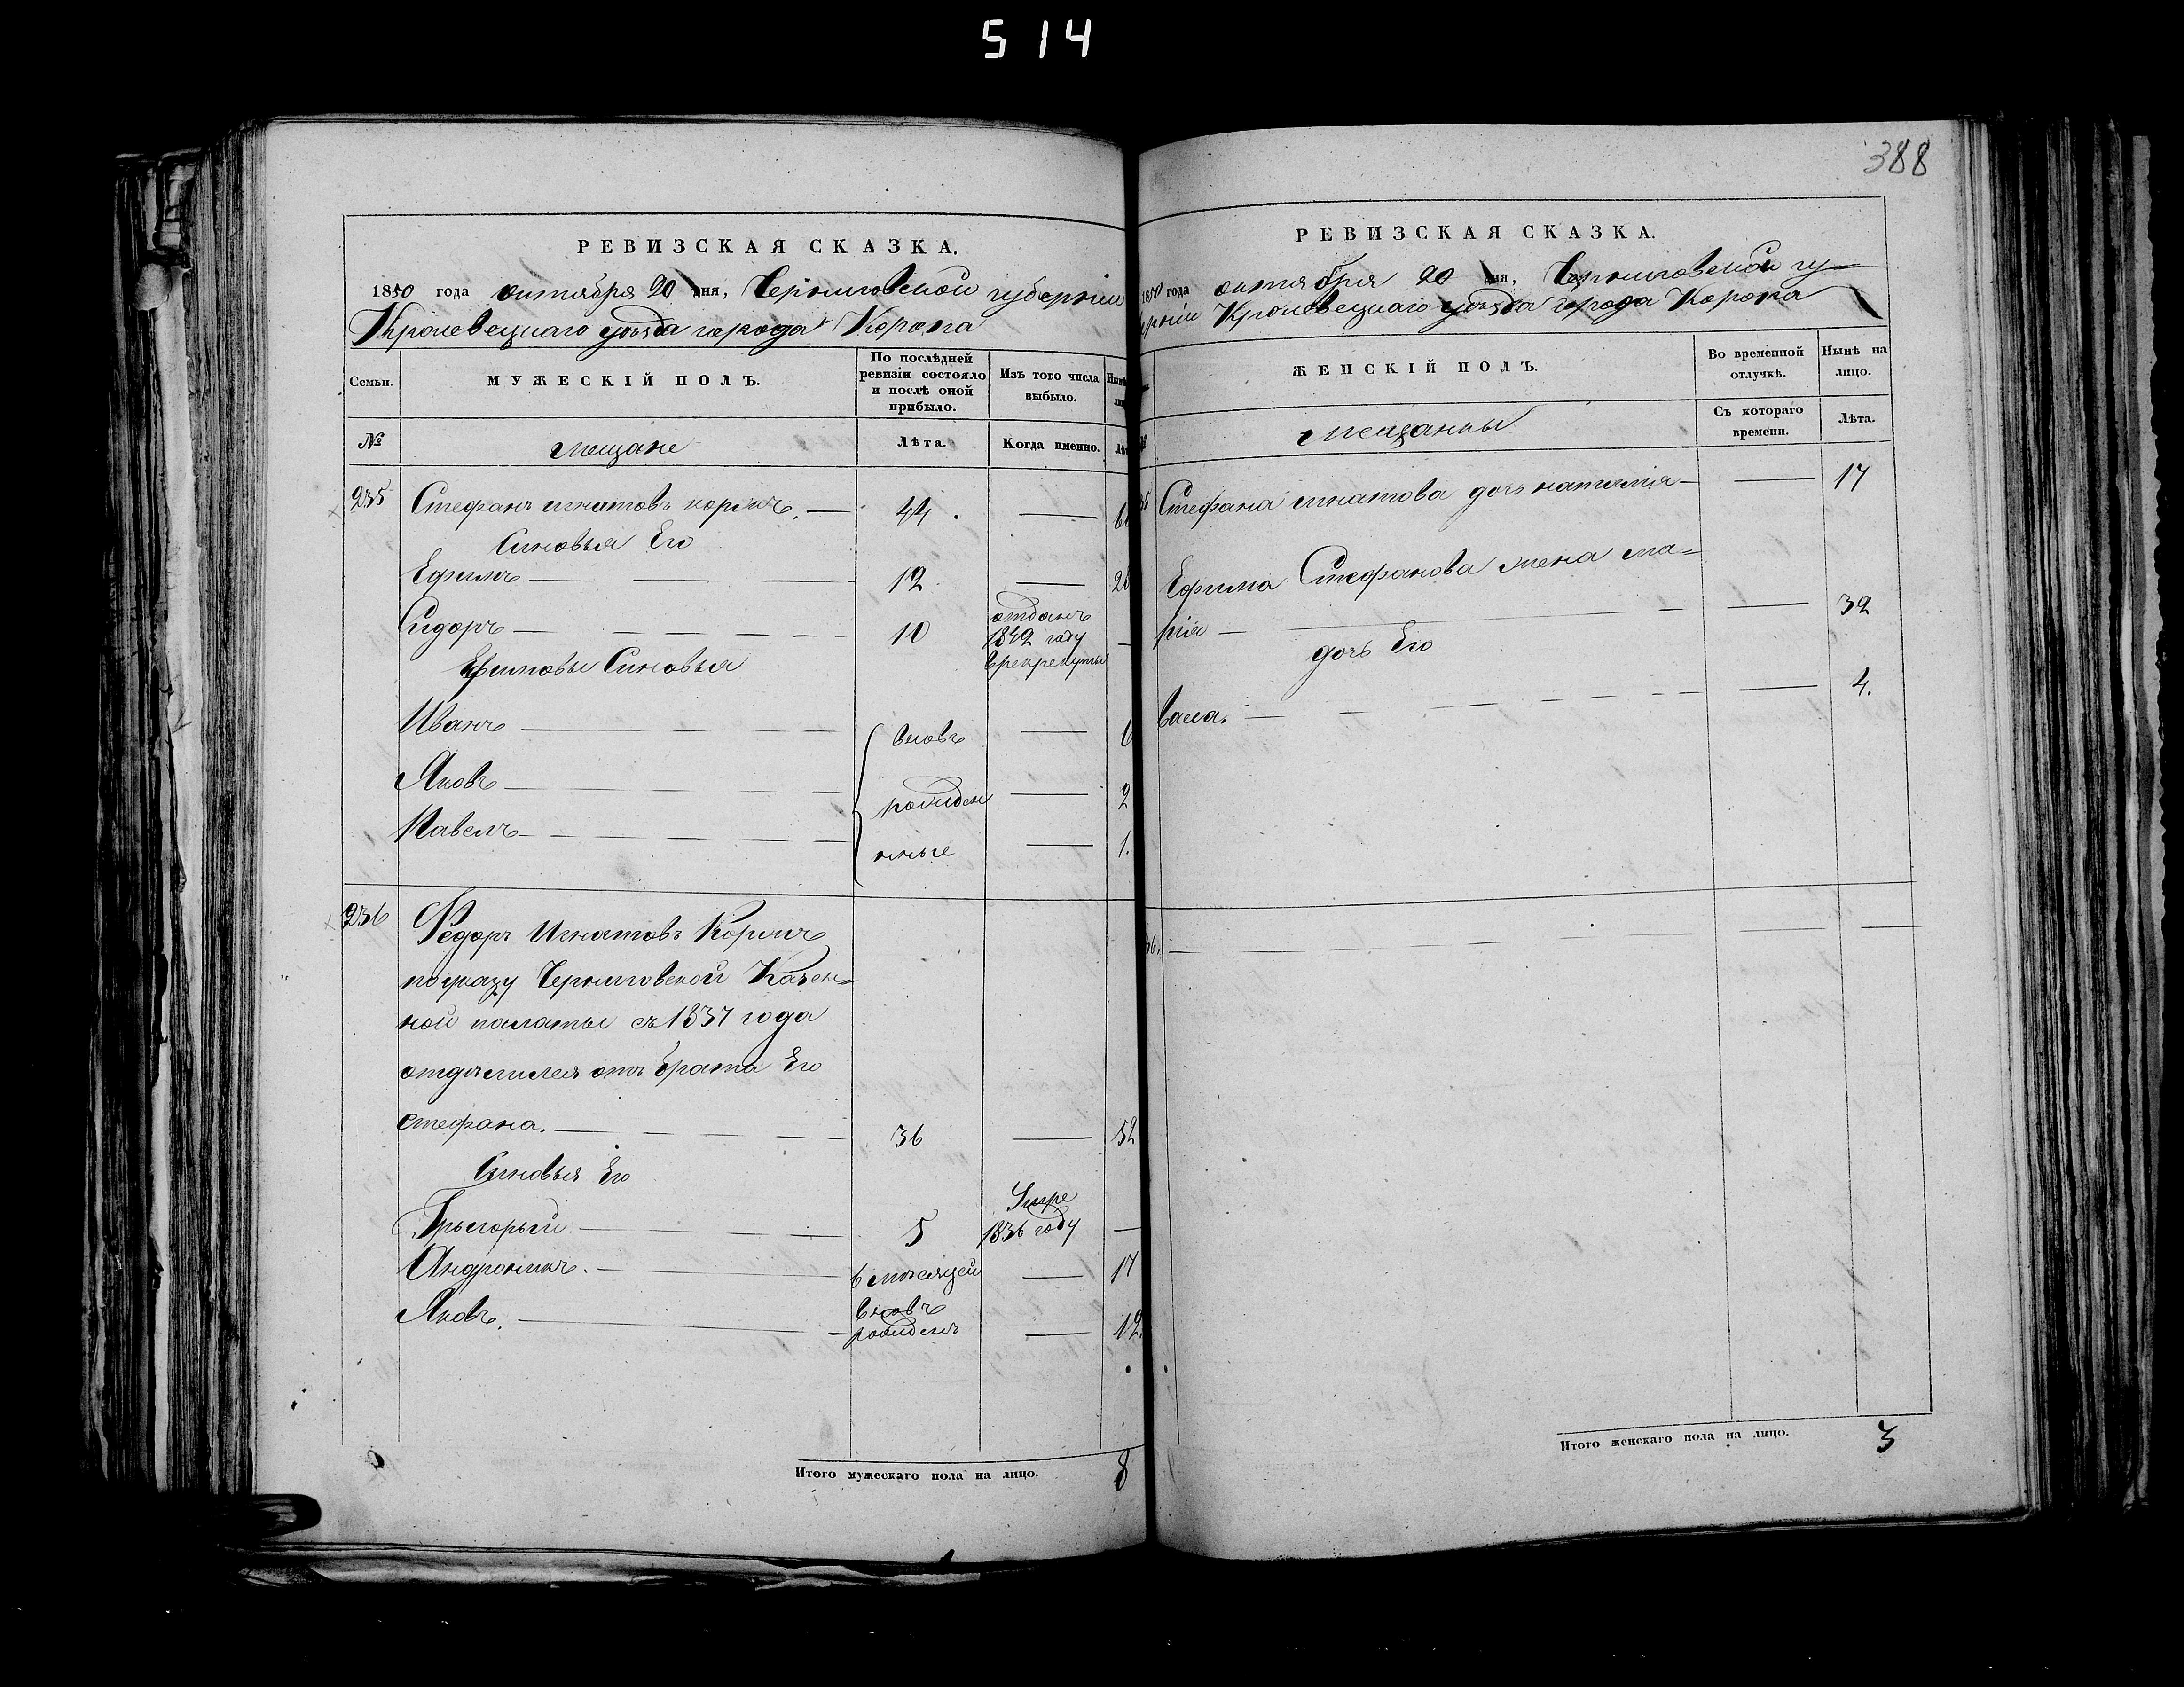 514
РЕВИЗСКАЯ СКАЗКА.
1850 года октября 20 дня, Черниговской губерніи
Кролевецкаго уѣзда города Коропа
Семьи.
МУЖЕСКІЙ ПОЛЪ.
По послѣдней ревизіи состояло и послѣ оной прибыло.
Изъ того числа выбыло.
№
мещане
Лѣта.
Когда именно.
235 Стефанъ игнатовъ 44
Синовья Его
Ефимъ 12
Сидоръ 10 отданъ 1842 году
Ефимовы Синовья
Иванъ вновь
Яковъ рожден 2
Павелъ нные 1.
236 Федоръ Игнатовъ
поуказу Черниговской Казен=
ной палаты съ 1837 года
отделился отъ брата Его
стефана. 36 52
Синовья Его
Грыгорый 5 Умре 1836 году
Андроникъ. 6 месяцей 17
Яковъ. вновь рожденъ 12.
Итого мужескаго пола на лицо. 8
388
РЕВИЗСКАЯ СКАЗКА.
1850 года октября 20 дня, Черниговской гу-
Кролевецкаго уѣзда города Коропа
ЖЕНСКІЙ ПОЛЪ.
Во временной отлучкѣ.
Нынѣ на лицо.
мещанки
Съ котораго времени.
Лѣта.
Стефана игнатова дочь наталія 17
Ефима Стефанова жена ма=
рія 32
дочь Его
васа. 4.
36.
Итого женскаго пола на лицо. 3